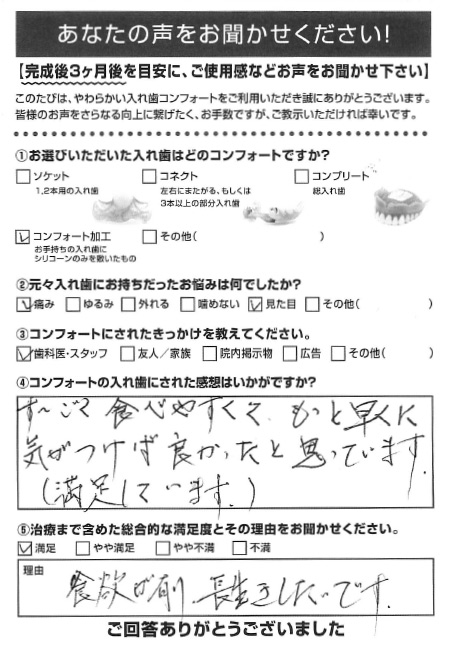 あなたの声をお聞かせください!
【完成後3ヶ月後を目安に、ご使用感などお声をお聞かせ下さい】
このたびは、やわらかい入れ歯コンフォートをご利用いただき誠にありがとうございます。
皆様のお声をさらなる向上に繋げたく、お手数ですが、ご教示いただければ幸いです。
①お選びいただいた入れ歯はどのコンフォートですか?
□ソケット
1,2本用の入れ歯
□コネクト
左右にまたがる、もしくは
3本以上の部分入れ歯
□コンプリート
総入れ歯
☑コンフォート加工
お手持ちの入れ歯に
シリコーンのみを敷いたもの
□その他( )
②元々入れ歯にお持ちだったお悩みは何でしたか?
☑痛み □ゆるみ □外れる □噛めない ☑見た目 □その他( )
③コンフォートにされたきっかけを教えてください。
☑歯科医・スタッフ □友人/家族 □院内掲示物 □広告 □その他( )
④コンフォートの入れ歯にされた感想はいかがですか?
す〜ごく食べやすくて、もっと早くに
気がつけば良かったと思っています。
(満足しています。)
⑤治療まで含めた総合的な満足度とその理由をお聞かせください。
☑満足 □やや満足 □やや不満 □不満
理由
食欲が有り、長生きしたいです。
ご回答ありがとうございました